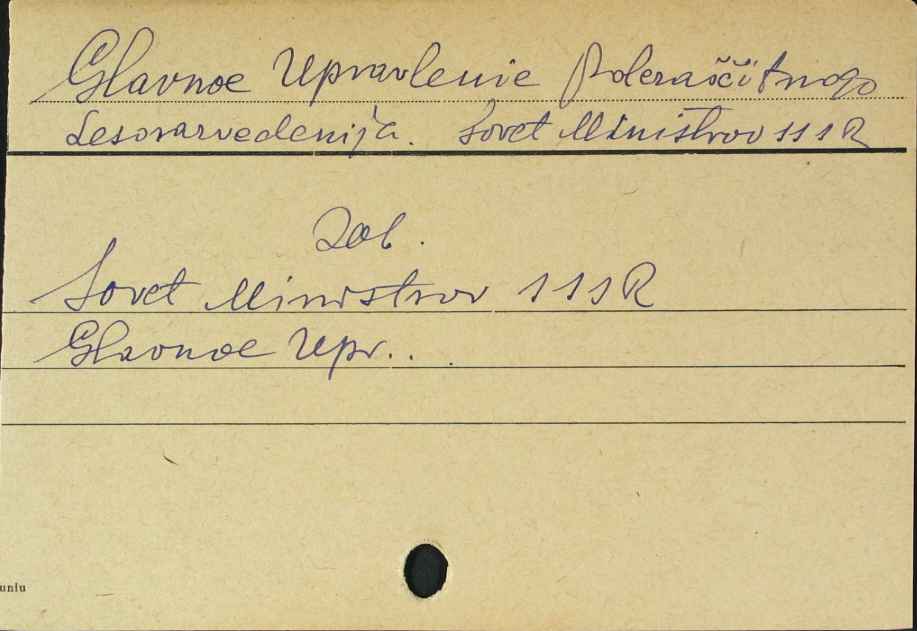 Glavnoe Upravlenie Polezaščitnogo
Lesorazvedenija. Sovet Ministrov SSSR
Zob.
Sovet Ministrov SSSR
Glavnoe Upr..
uniu